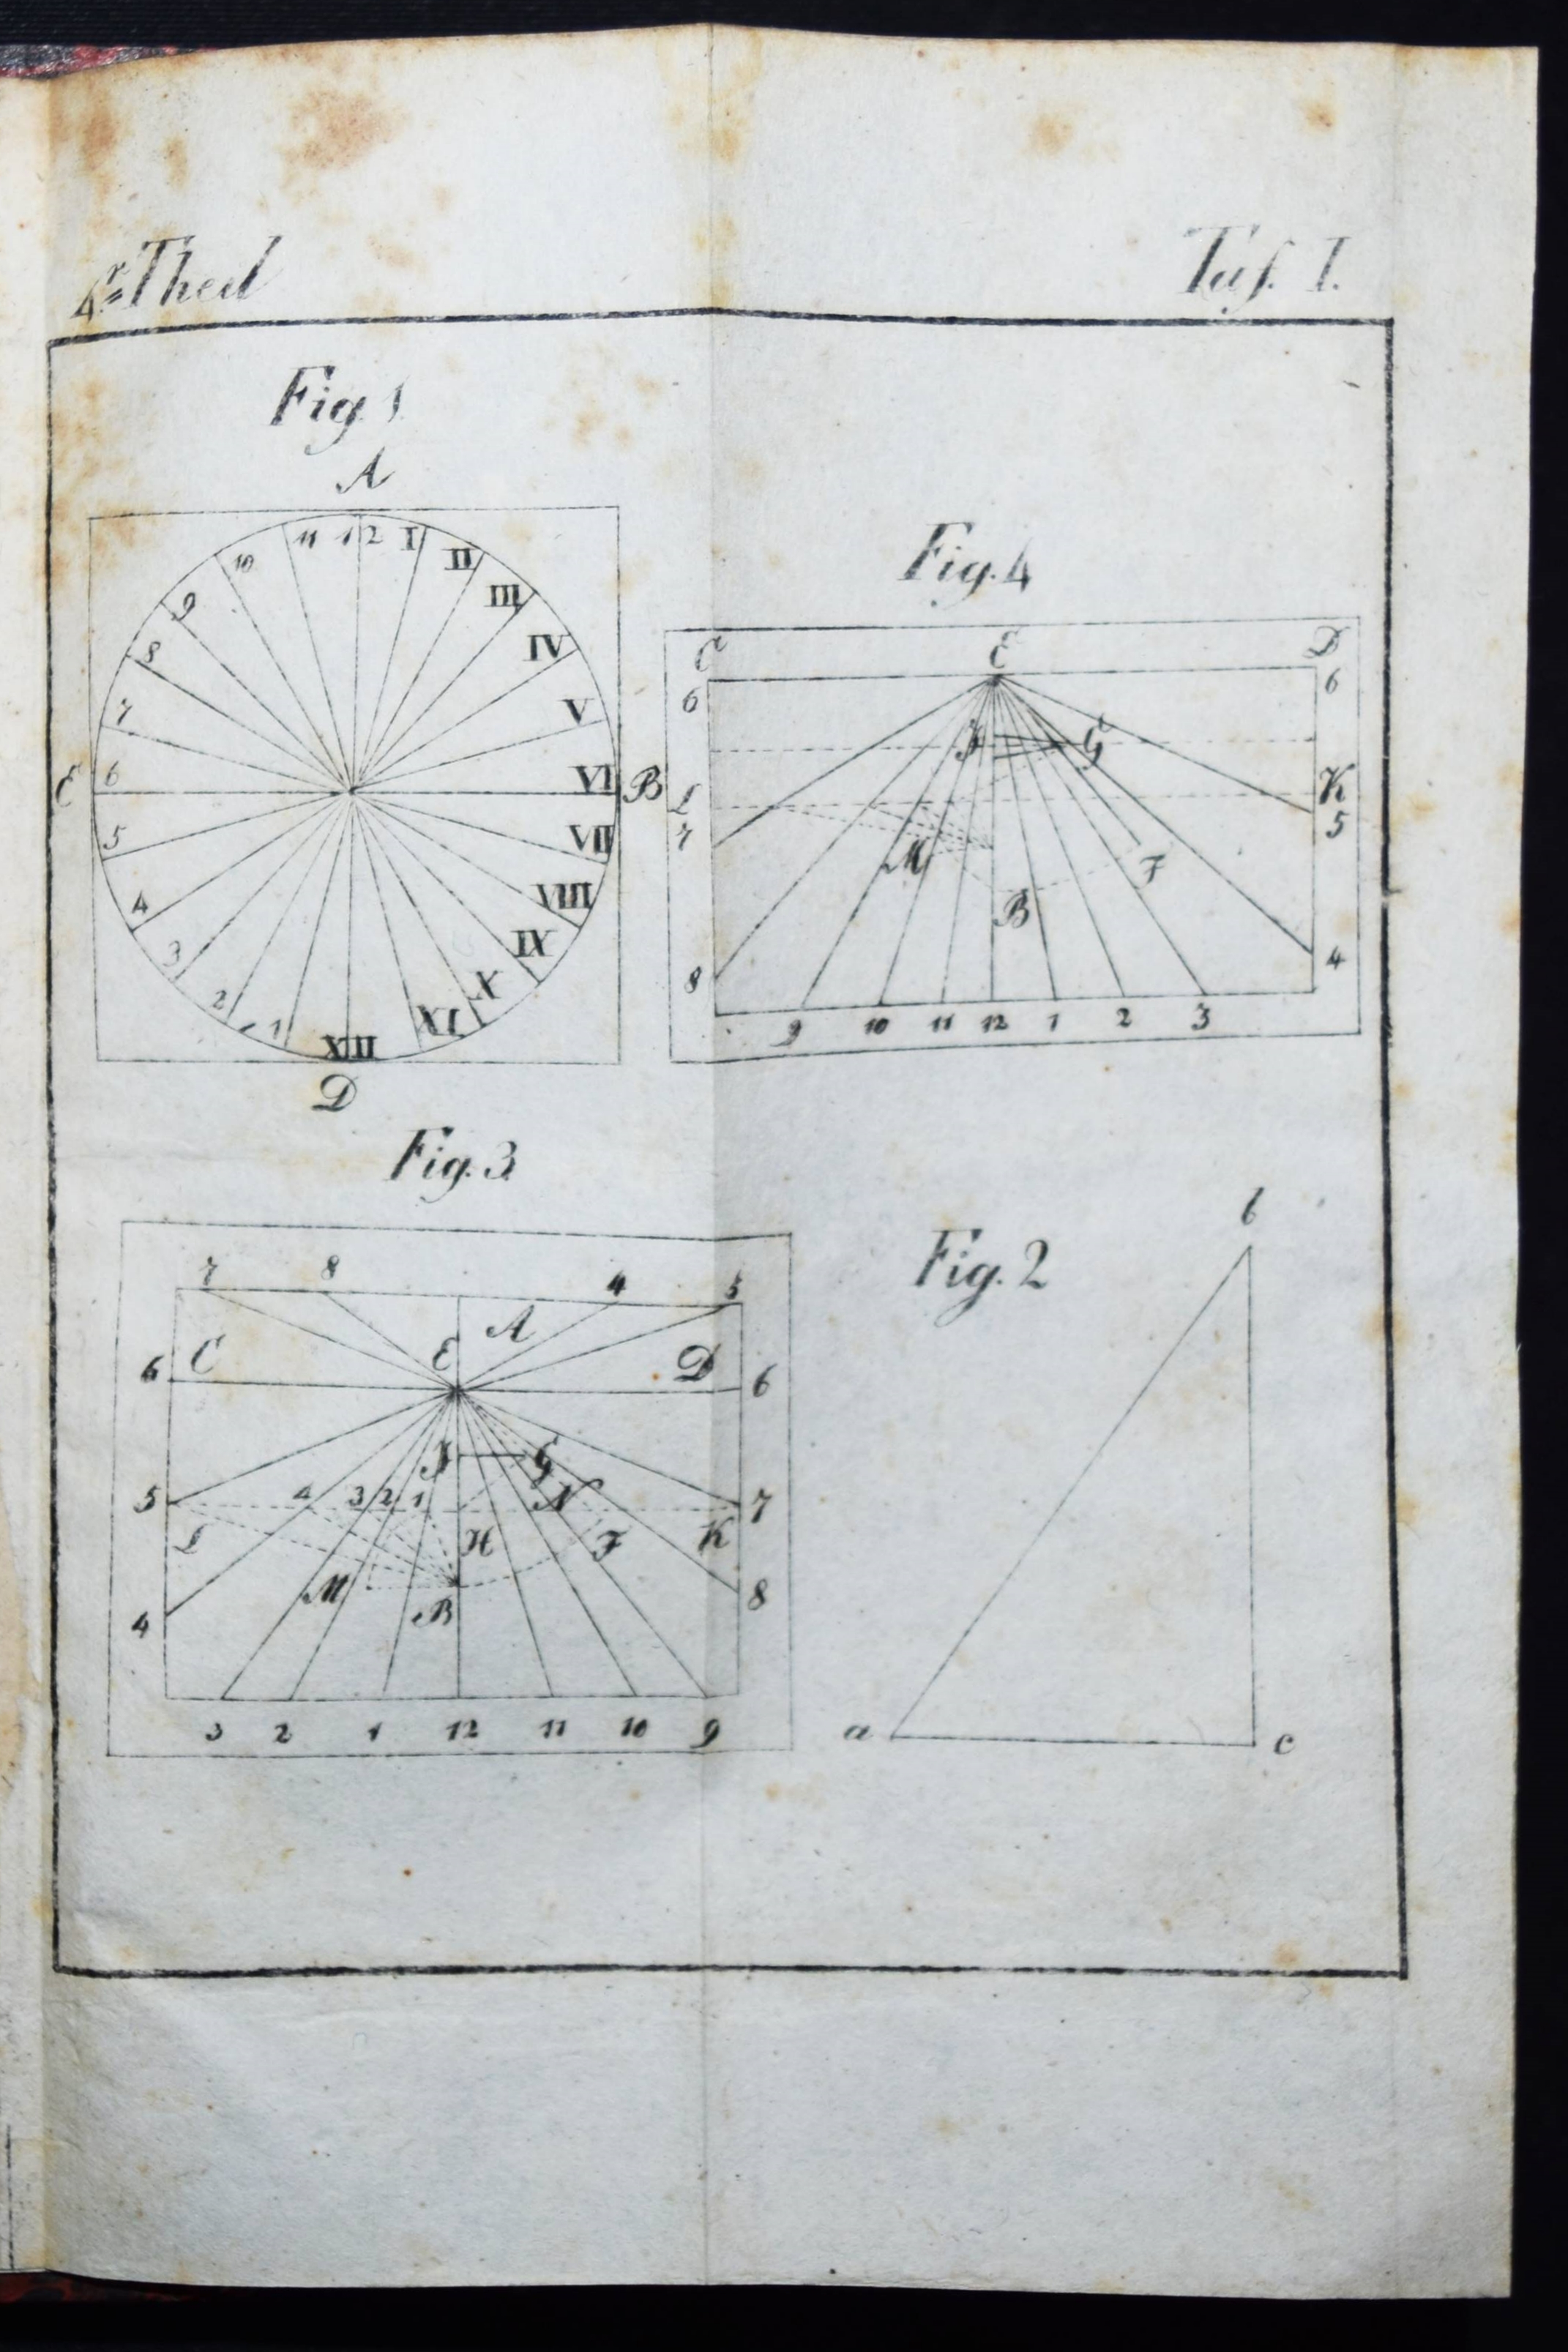 4r Theil
Taf. I.
Fig. 1
A
11 12 I
10 II
9 III
8 IV
7 V
E 6 VI B
5 VII
4 VIII
3 IX
2 X
1 XII XI
D
Fig. 4
C E D
6 6
J G
L K
7 5
M F
B
8 4
9 10 11 12 1 2 3
Fig. 3
7 8 4 5
A
6 C E D 6
J G
5 4 3 2 1 N 7
L H F K
M B 8
4
3 2 1 12 11 10 9
Fig. 2
b
a c